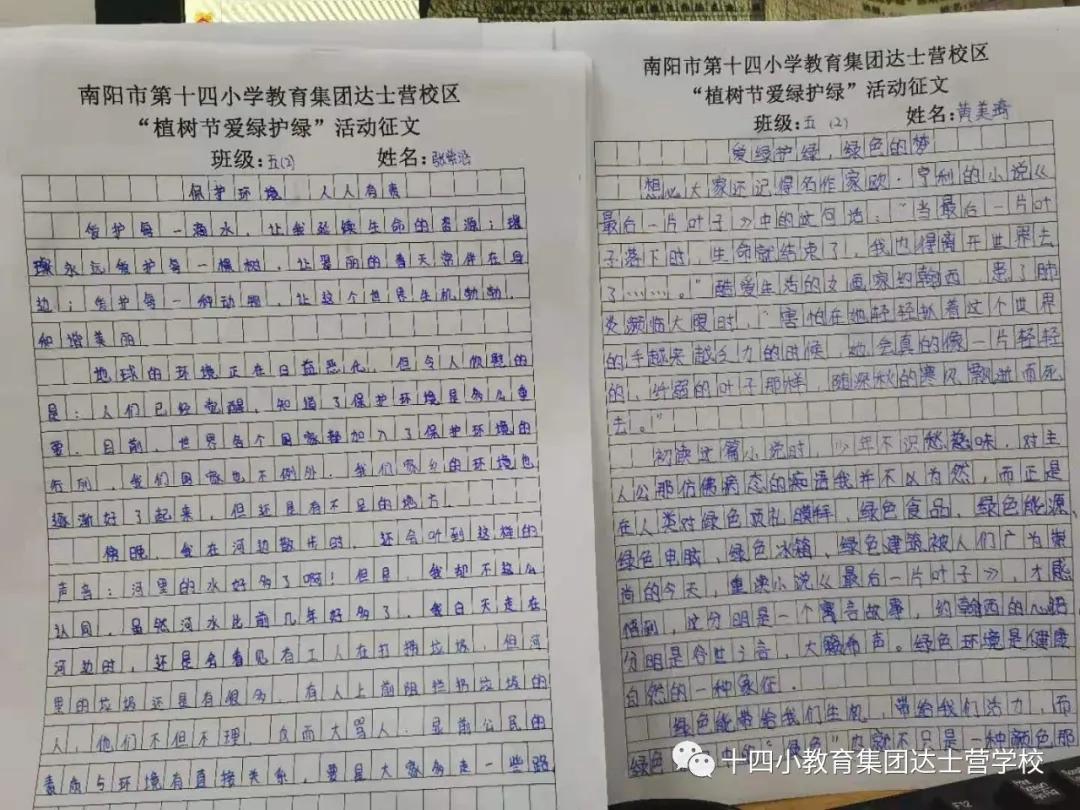 南阳市第十四小学教育集团达士营校区
“植树节爱绿护绿”活动征文
班级:五(2) 姓名:
保护环境 人人有责
爱护每一滴水,让我延续生命的资源;
永远爱护每一棵树,让翠丽的春天常伴在身
边;爱护每一种动物,让这个世界生机勃勃,
和谐美丽
地球的环境正在日益恶化,但令人欣慰的
是:人们已经觉醒,知道了保护环境是多么重
要。目前,世界各个国家都加入了保护环境的
行列,我们国家也不例外。我们家乡的环境也
逐渐好了起来,但还是有不足的地方。
傍晚,我在河边散步时,还会听到这样的
声音:河里的水好多了啊!但是,我却不这么
认同,虽然河水比前几年好多了,我白天走在
河边时,还是会看见有工人在打捞垃圾,但河
里的垃圾还是有很多,有人上前阻拦扔垃圾的
人,他们不但不理,反而大骂人。显前公民的
素质与环境有直接关系,要是大家多走一些路
南阳市第十四小学教育集团达士营校区
“植树节爱绿护绿”活动征文
班级:五(2) 姓名:黄美琦
爱绿护绿,绿色的梦
想必大家还记得名作家欧·亨利的小说《
最后一片叶子》中的这句话:“当最后一片叶
子落下时,生命就结束了,我也得离开世界去
了……。”酷爱生活的女画家约翰西,患了肺
炎濒临大限时,“害怕在她轻轻趴着这个世界
的手越来越乏力的时候,她会真的像一片轻轻
的、纤弱的叶子那样,随深秋的寒风飘逝而死
去。”
初读这篇小说时,少年不识愁滋味,对主
人公那仿佛病态的痴语我并不以为然,而正是
在人类对绿色顶礼膜拜、绿色食品、绿色能源、
绿色电脑、绿色冰箱、绿色建筑被人们广为崇
尚的今天,重读小说《最后一片叶子》,才感
悟到,这分明是一个寓言故事,约翰西的心语
分明是警世之音,大籁希声。绿色环境是健康
自然的一种象征.
绿色能带给我们生机,带给我们活力,而
绿色 中的“绿色”也就不只是一种颜色那
十四小教育集团达士营学校